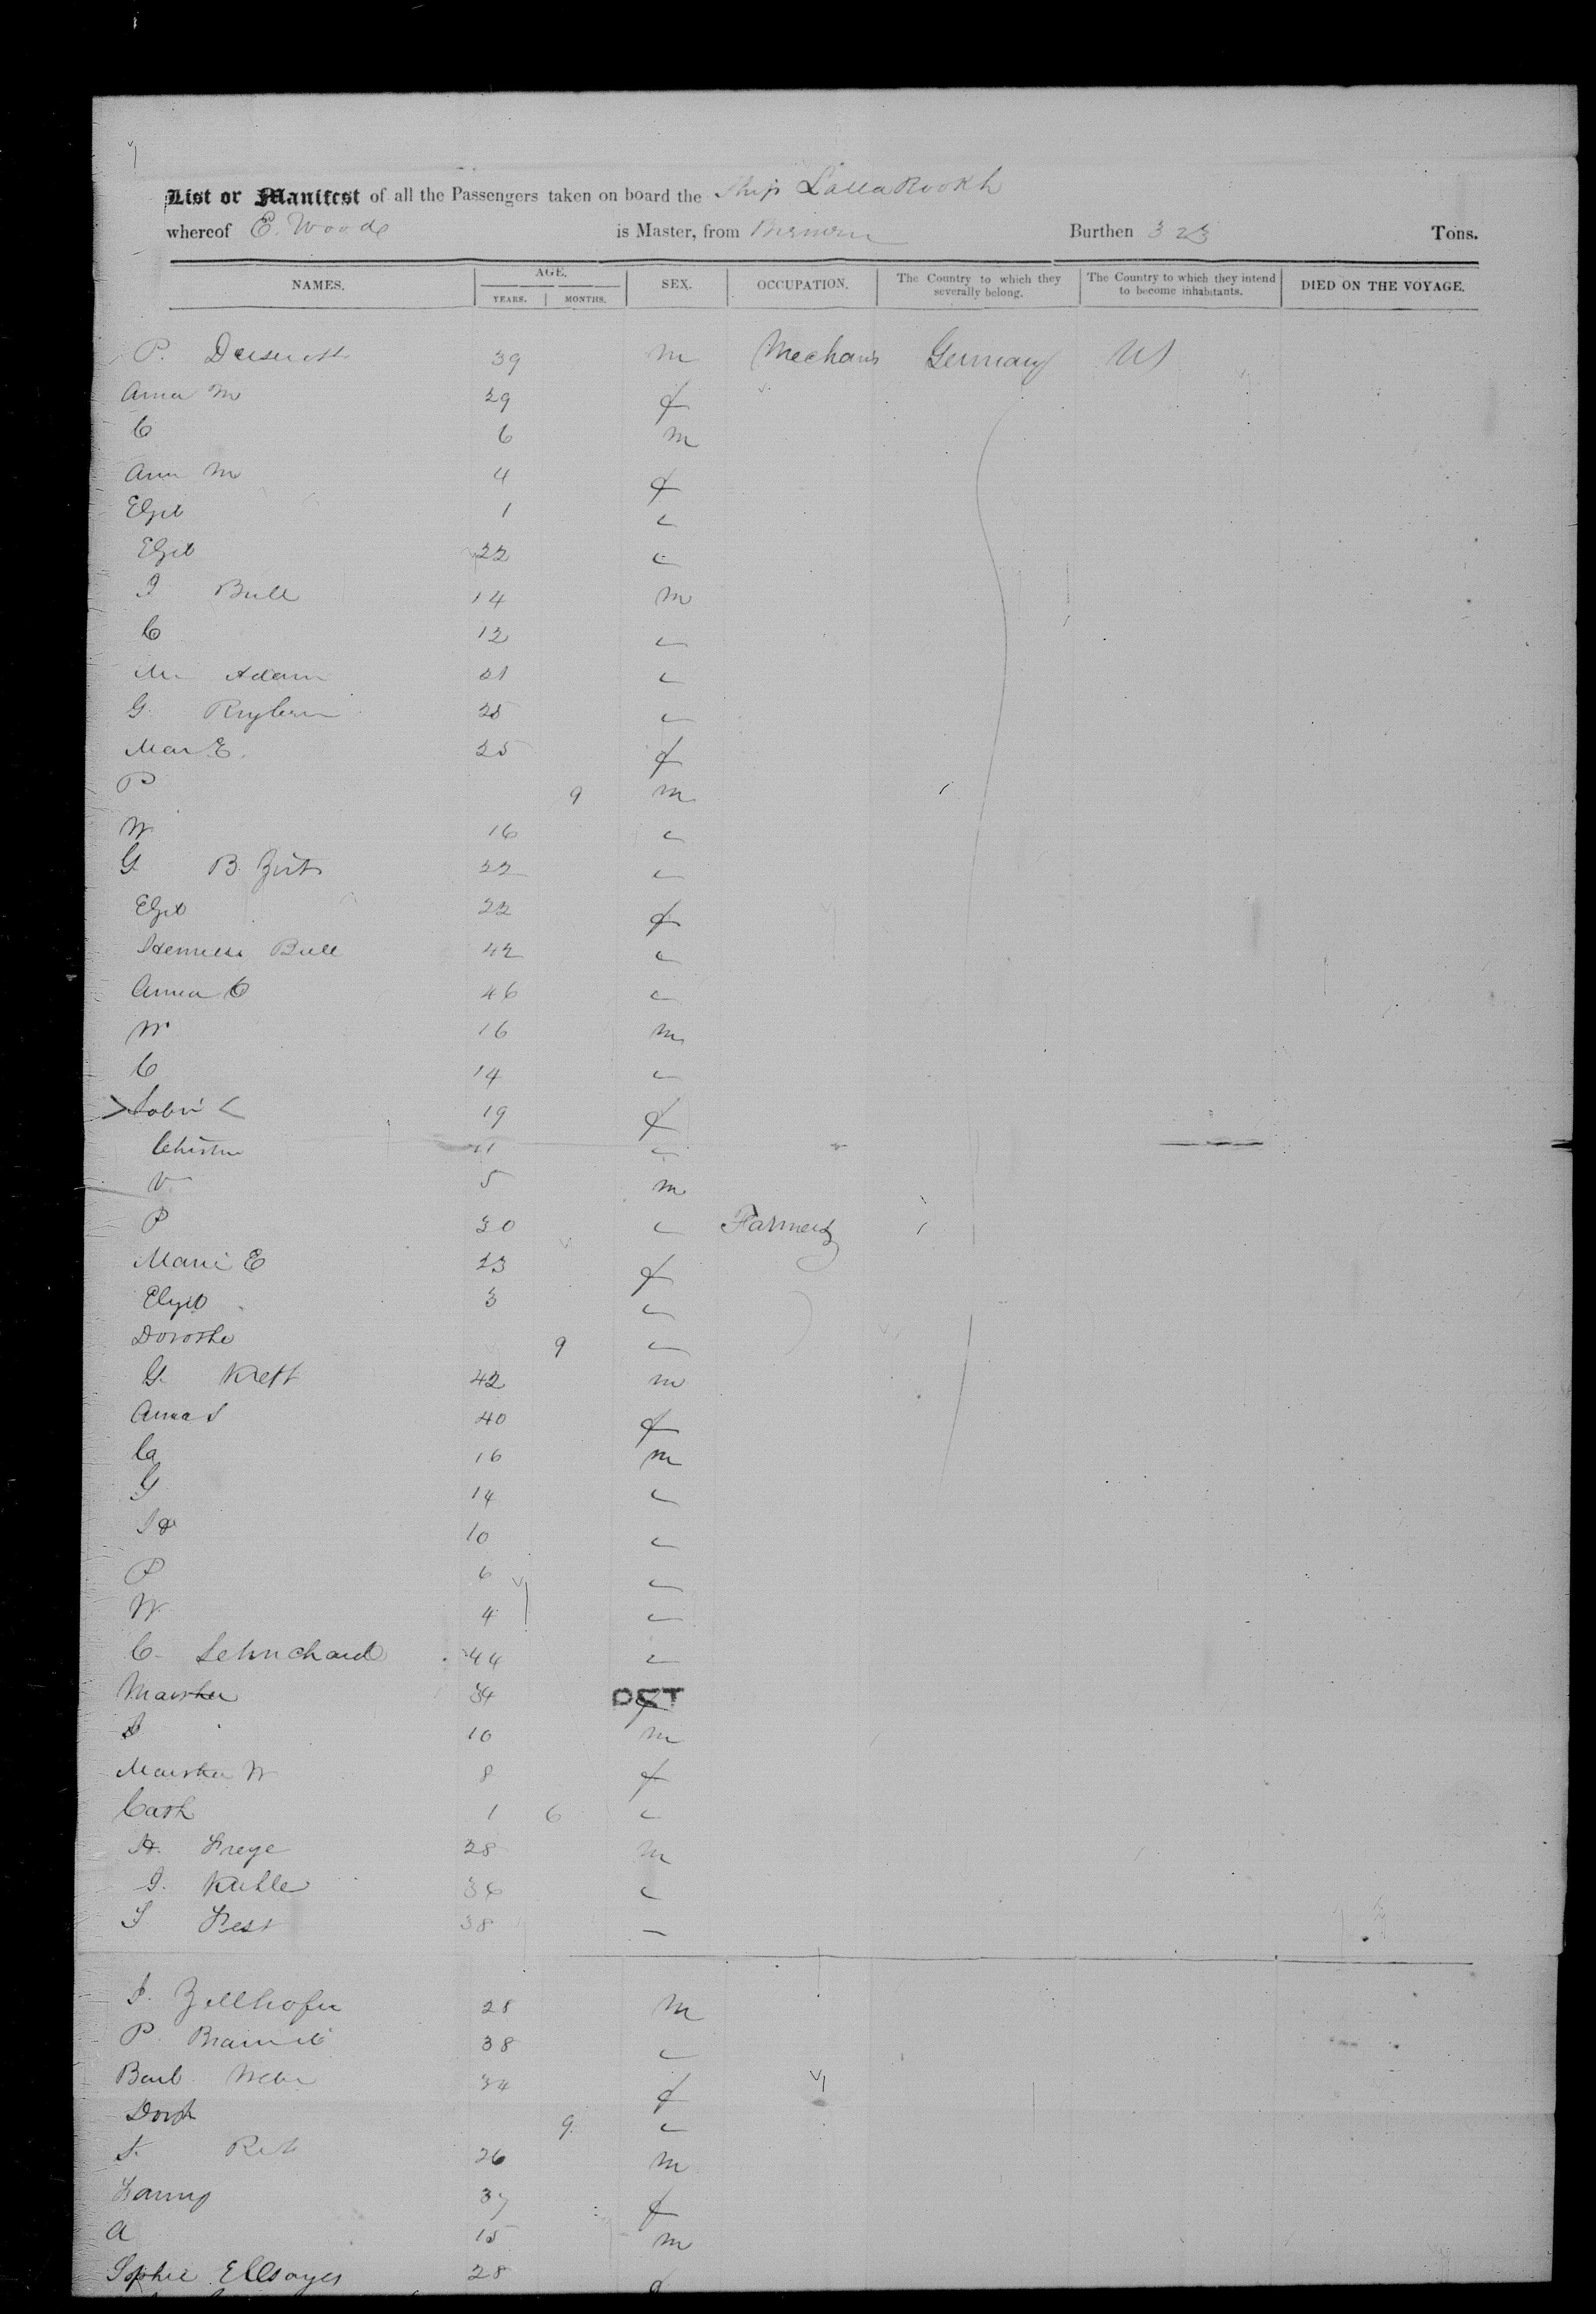 List or Manifest of all the Passengers taken on board the Ship Lalla Rookh
whereof E. Woods is Master, from Bremen Burthen 323 Tons.
NAMES. AGE. YEARS. MONTHS. SEX. OCCUPATION. The Country to which they severally belong. The Country to which they intend to become inhabitants. DIED ON THE VOYAGE.
P. 39 m Mechanis Germany US
Anna M 29 f
C 6 m
Ann M 4 f
Elzib 1 "
Elzib 22 "
I Bull 14 m
C 12 "
M. Adam 21 "
G. 25 "
Mar E. 25 f
P 9 m
W 16 "
G B. 22 "
Elzib 22 f
Bull 42 "
Anna C 46 "
W 16 m
C 14 "
19 f
Christin 11 "
V 5 m
P 30 " Farmers
Marie E 23 f
Elzib 3 "
Dorothe 9 "
G. Kreft 42 m
Anna S 40 f
Ca 16 m
G 14 "
10 "
P 6 "
W 4 "
C. 44 "
Martha 34 f
S 10 m
Martha W 8 f
Cath 1 6 "
H. Freye 28 m
I. Kuhle 36 "
38 "
I. Zellhofer 28 m
P. 38 "
Barb 34 f
Doroh 9 "
26 m
Fanny 37 f
A 15 m
Sophie 28 f